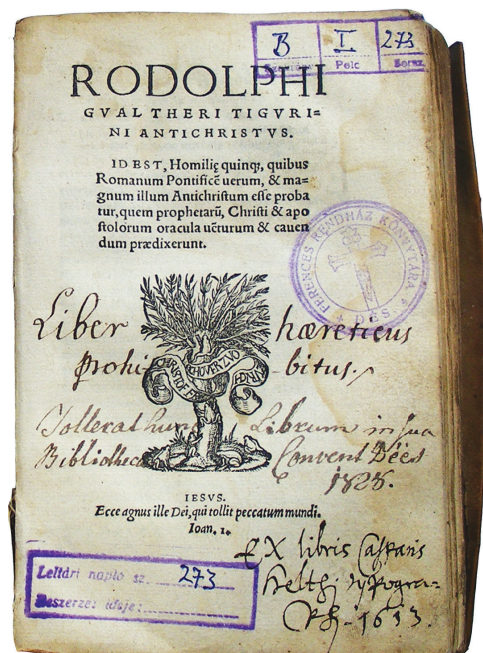 B I 273
Polc
RODOLPHI
GVALTHERI TIGVRI=
NI ANTICHRISTVS.
ID EST, Homilię quinq;, quibus
Romanum Pontificē uerum, & ma=
gnum illum Antichristum esse proba
tur, quem prophetarū, Christi & apo
stolorum oracula uēturum & cauen
dum prædixerunt.
FERENCES RENDHÁZ KÖNYVTÁRA
DÉS
Liber hæreticus
prohi-bitus.
CHRISTOF FROSCHOVER ZVO
Tollerat hunc Librum in sua
Bibliotheca Convent Dées
1828.
IESVS.
Ecce agnus ille Dei, qui tollit peccatum mundi.
Ioan. 1.
Ex libris Casparis
Helthi Typogra-
Ph. 1613.
Leltári napló sz. 273
Beszerzes ideje: